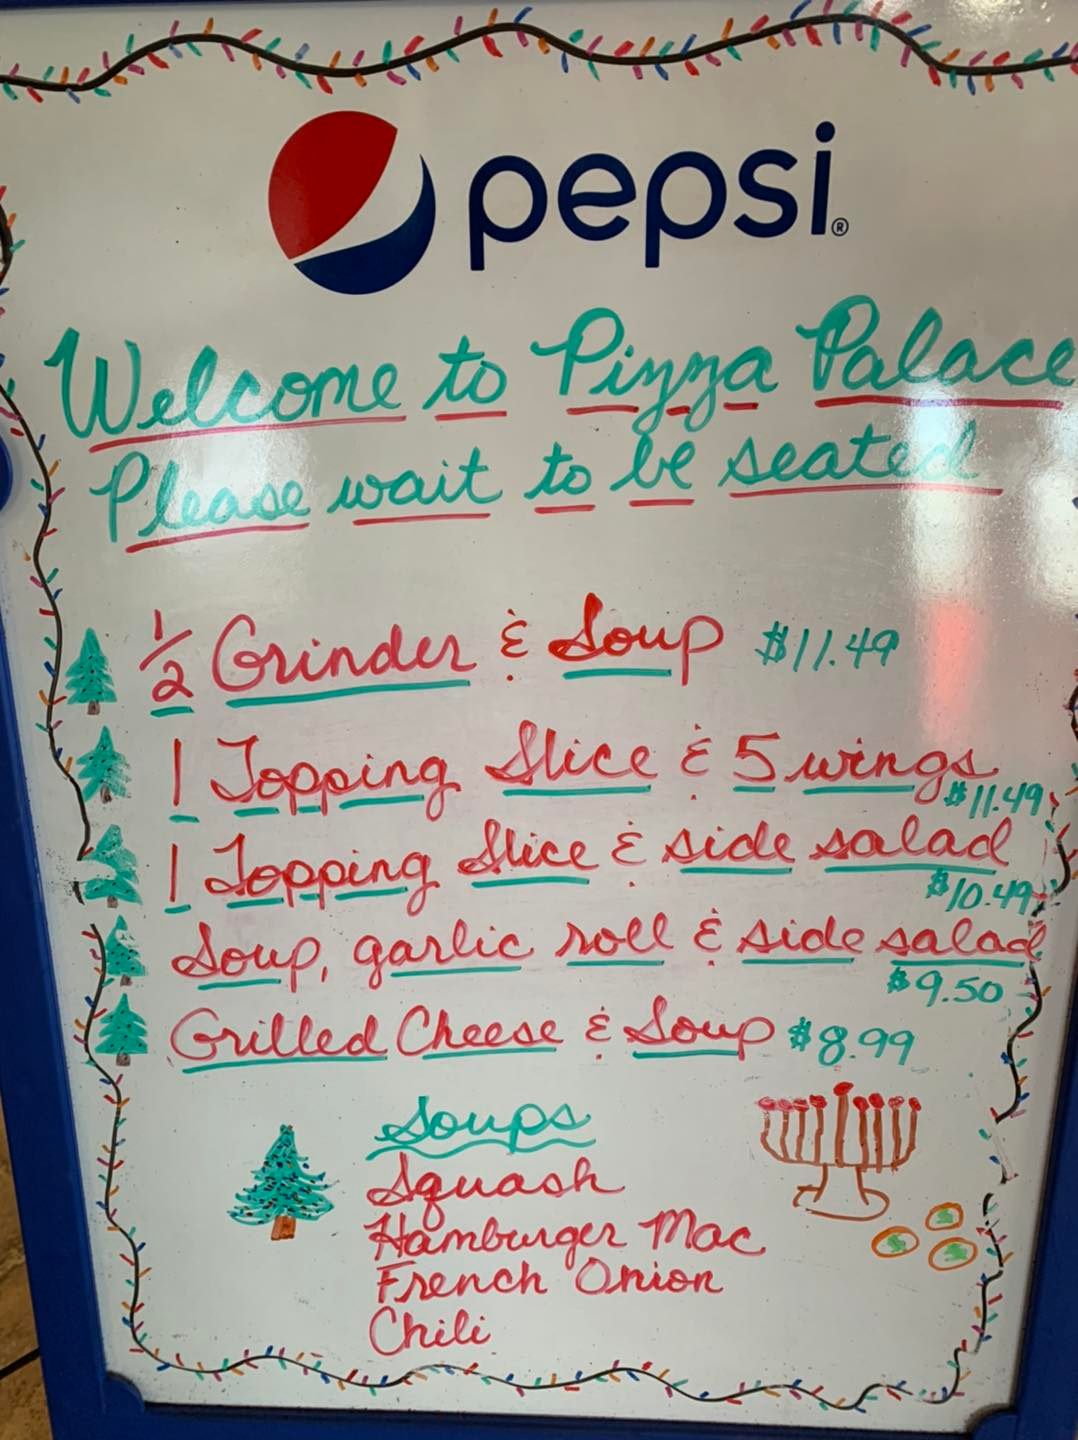 pepsi®
Welcome to Pizza Palace
Please wait to be seated
1/2 Grinder & Soup $11.49
1 Topping Slice & 5 wings
$11.49
1 Topping Slice & side salad
$10.49
Soup, garlic roll & side salad
$9.50
Grilled Cheese & Soup $8.99
Soups
Squash
Hamburger Mac
French Onion
Chili